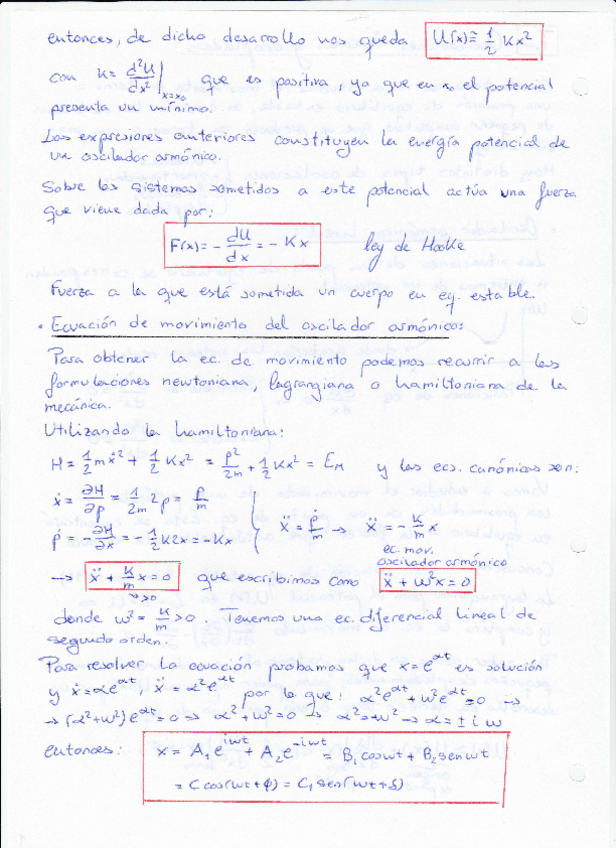 entonces, de dicho desarrollo nos queda U(x) ≅ 1/2 Kx²
con K = d²U/dx² |x=x₀ que es positiva, ya que en x₀ el potencial
presenta un mínimo.
Las expresiones anteriores constituyen la energía potencial de
un oscilador armónico.
Sobre los sistemas sometidos a este potencial actúa una fuerza
que viene dada por:
F(x) = - dU/dx = - Kx ley de Hooke
Fuerza a la que está sometida un cuerpo en eq. estable.
• Ecuación de movimiento del oscilador armónico
Para obtener la ec. de movimiento podemos recurrir a las
formulaciones newtoniana, lagrangiana o hamiltoniana de la
mecánica.
Utilizando la hamiltoniana:
H = 1/2 mẋ² + 1/2 Kx² = p²/2m + 1/2 Kx² = E_M y las ecs. canónicas son:
ẋ = ∂H/∂p = 1/2m 2p = p/m
ṗ = - ∂H/∂x = - 1/2 K2x = -Kx
ẍ = ṗ/m → ẍ = - K/m x
ec. mov.
oscilador armónico
→ ẍ + K/m x = 0 que escribimos como ẍ + ω²x = 0
↪ >0
donde ω² = K/m > 0. Tenemos una ec. diferencial lineal de
segundo orden.
Para resolver la ecuación probamos que x = e^αt es solución
y ẋ = αe^αt ẍ = α²e^αt por lo que: α²e^αt + ω²e^αt = 0 →
→ (α² + ω²)e^αt = 0 → α² + ω² = 0 → α² = -ω² → α = ± i ω
entonces: x = A₁e^iωt + A₂e^-iωt = B₁cosωt + B₂senωt
= C cos(ωt + φ) = C₁ sen(ωt + δ)